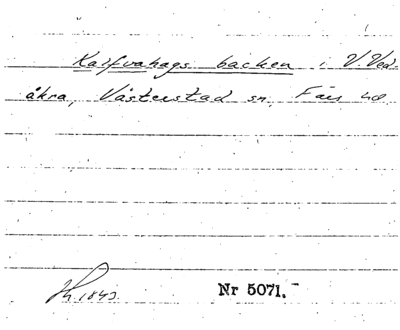 Kalfvahags backen i V. Ved-
åkra, Västerstad sn, Färs hd
1843.
Nr 5071.